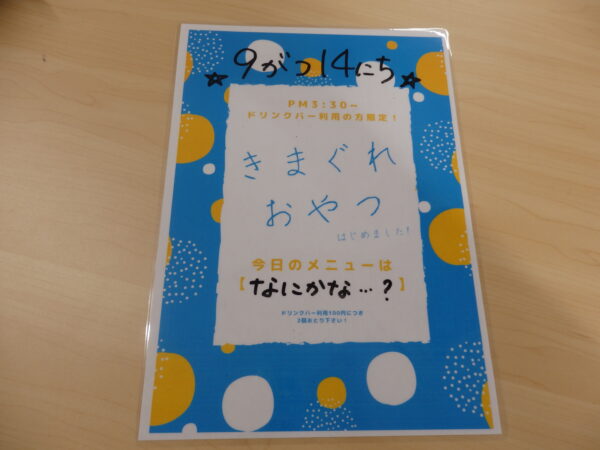 ☆9がつ14にち☆
PM3:30~
ドリンクバー利用の方限定！
きまぐれ
おやつ
はじめました！
今日のメニューは
【なにかな…？】
ドリンクバー利用100円につき
2個おとり下さい！